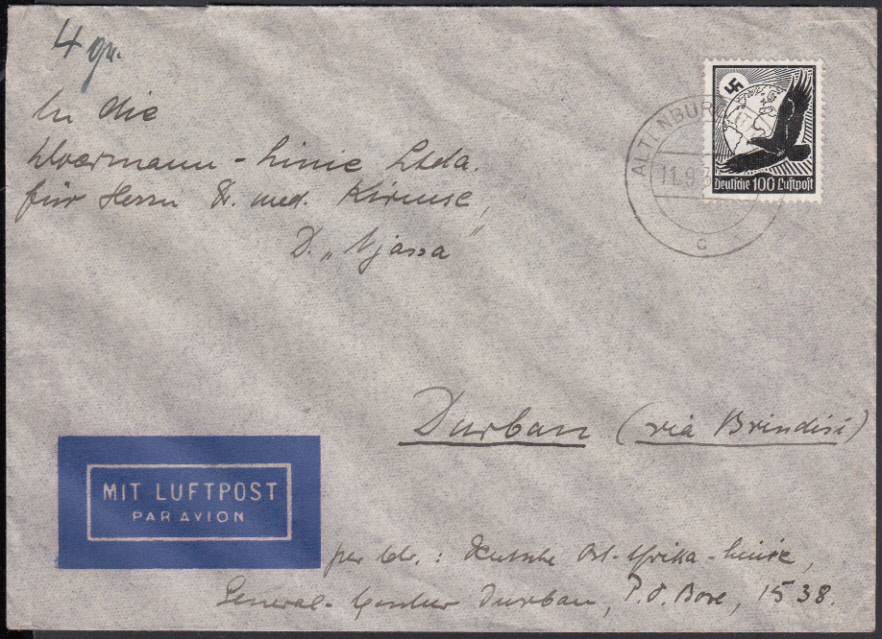 4 gr.
An die
Woermann-Linie Ltda.
für Herrn Dr. med. Kirmse,
D. „Njassa“
ALTENBURG
11.9.3
c
Deutsche 100 Luftpost
Durban (via Brindisi)
MIT LUFTPOST
PAR AVION
per Adr.: Deutsche Ost-Afrika-Linie,
General- Durban, P.O. Box, 1538.